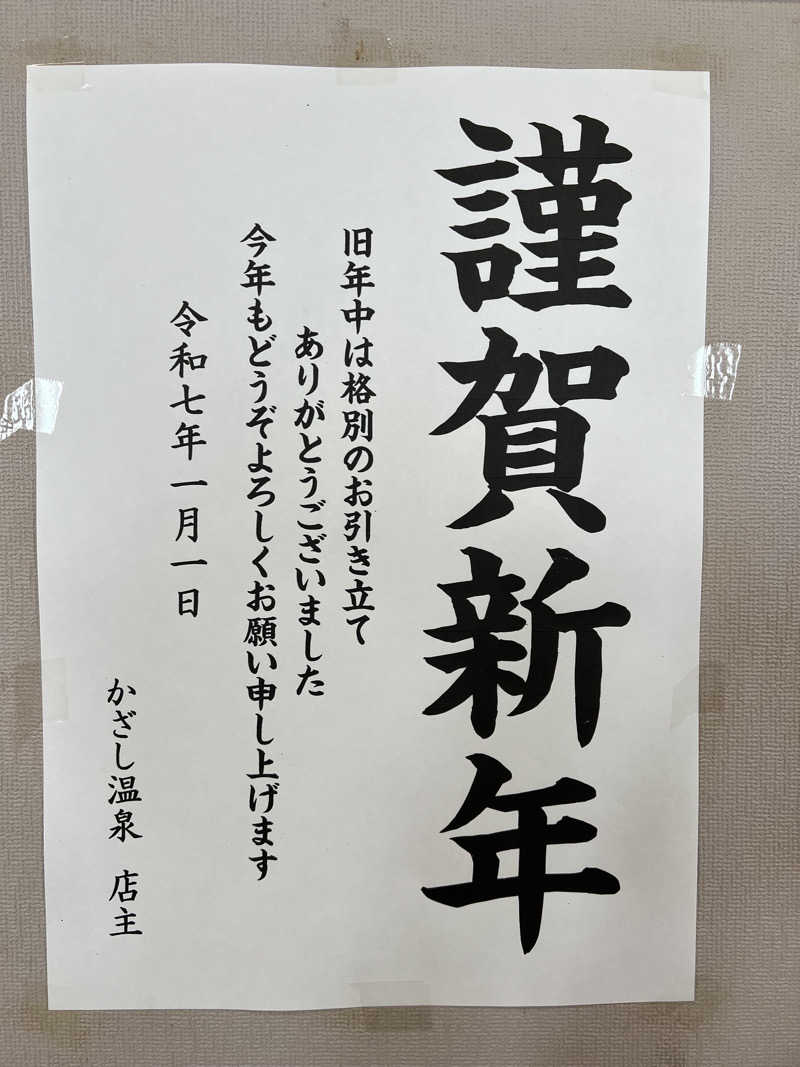 謹賀新年
旧年中は格別のお引き立て
ありがとうございました
今年もどうぞよろしくお願い申し上げます
令和七年一月一日
かざし温泉 店主